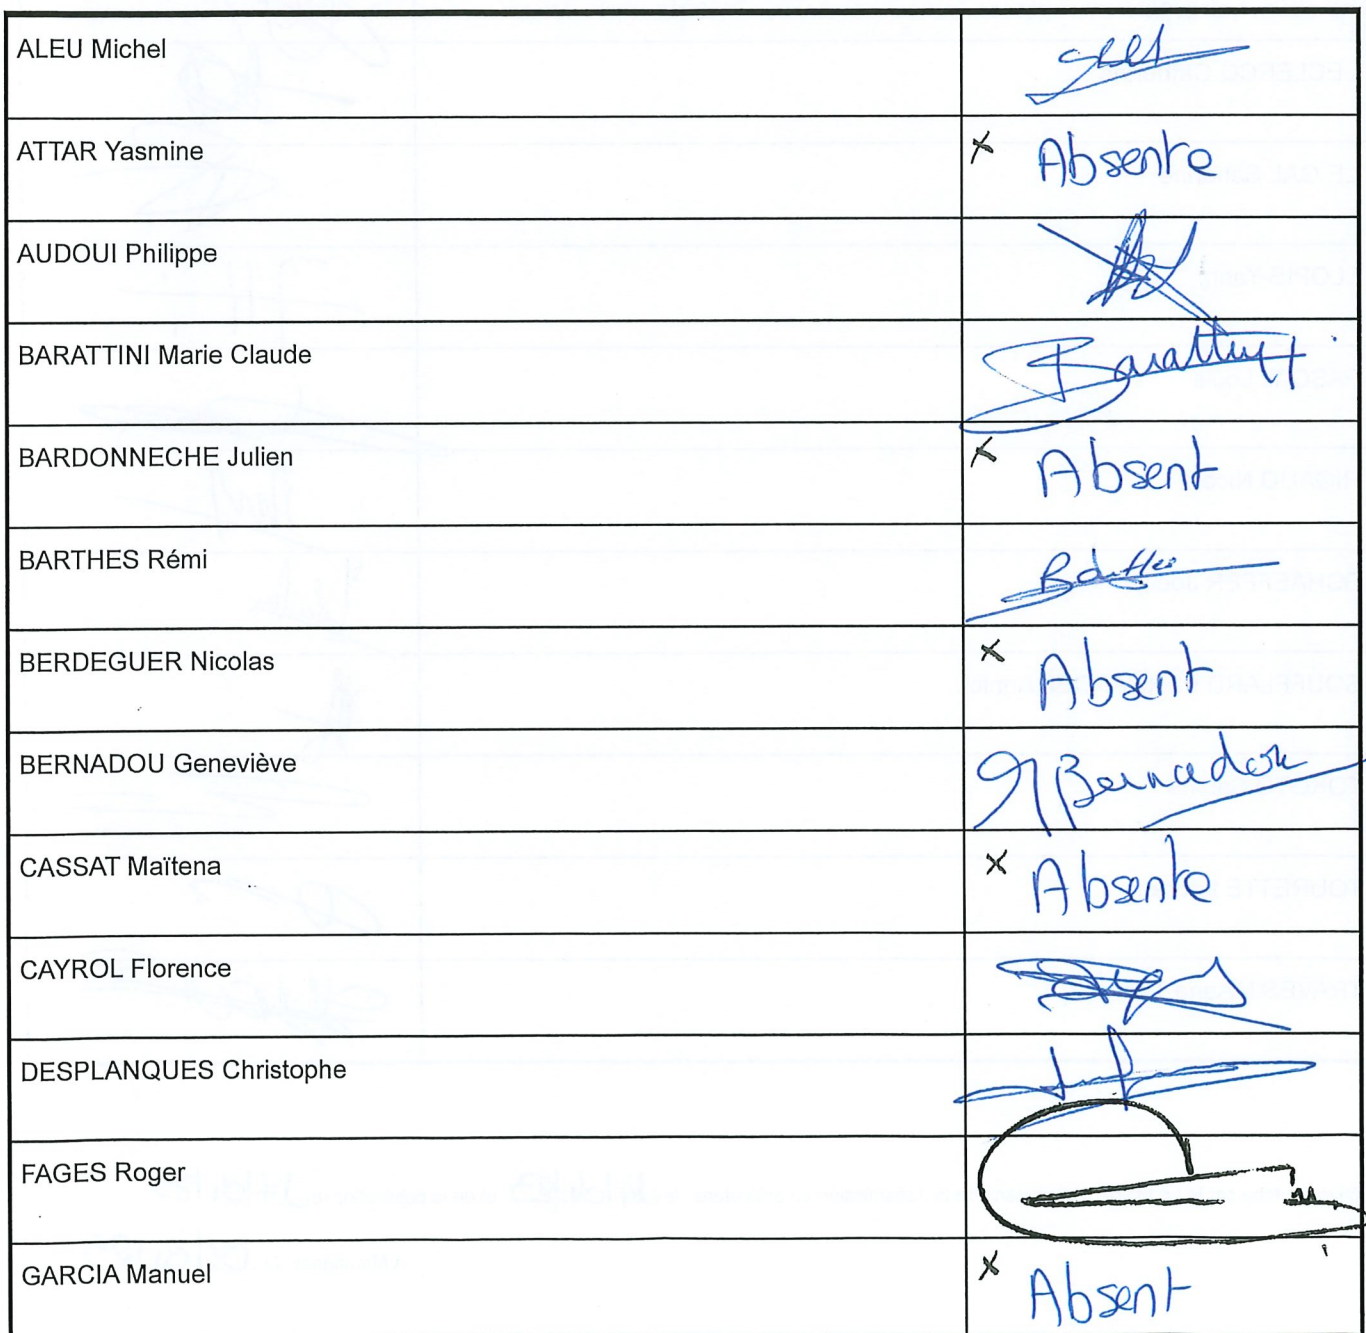 ALEU Michel
ATTAR Yasmine x Absente
AUDOUI Philippe
BARATTINI Marie Claude Barattini
BARDONNECHE Julien x Absent
BARTHES Rémi Barthes
BERDEGUER Nicolas x Absent
BERNADOU Geneviève G Bernadou
CASSAT Maïtena x Absente
CAYROL Florence
DESPLANQUES Christophe
FAGES Roger
GARCIA Manuel x Absent